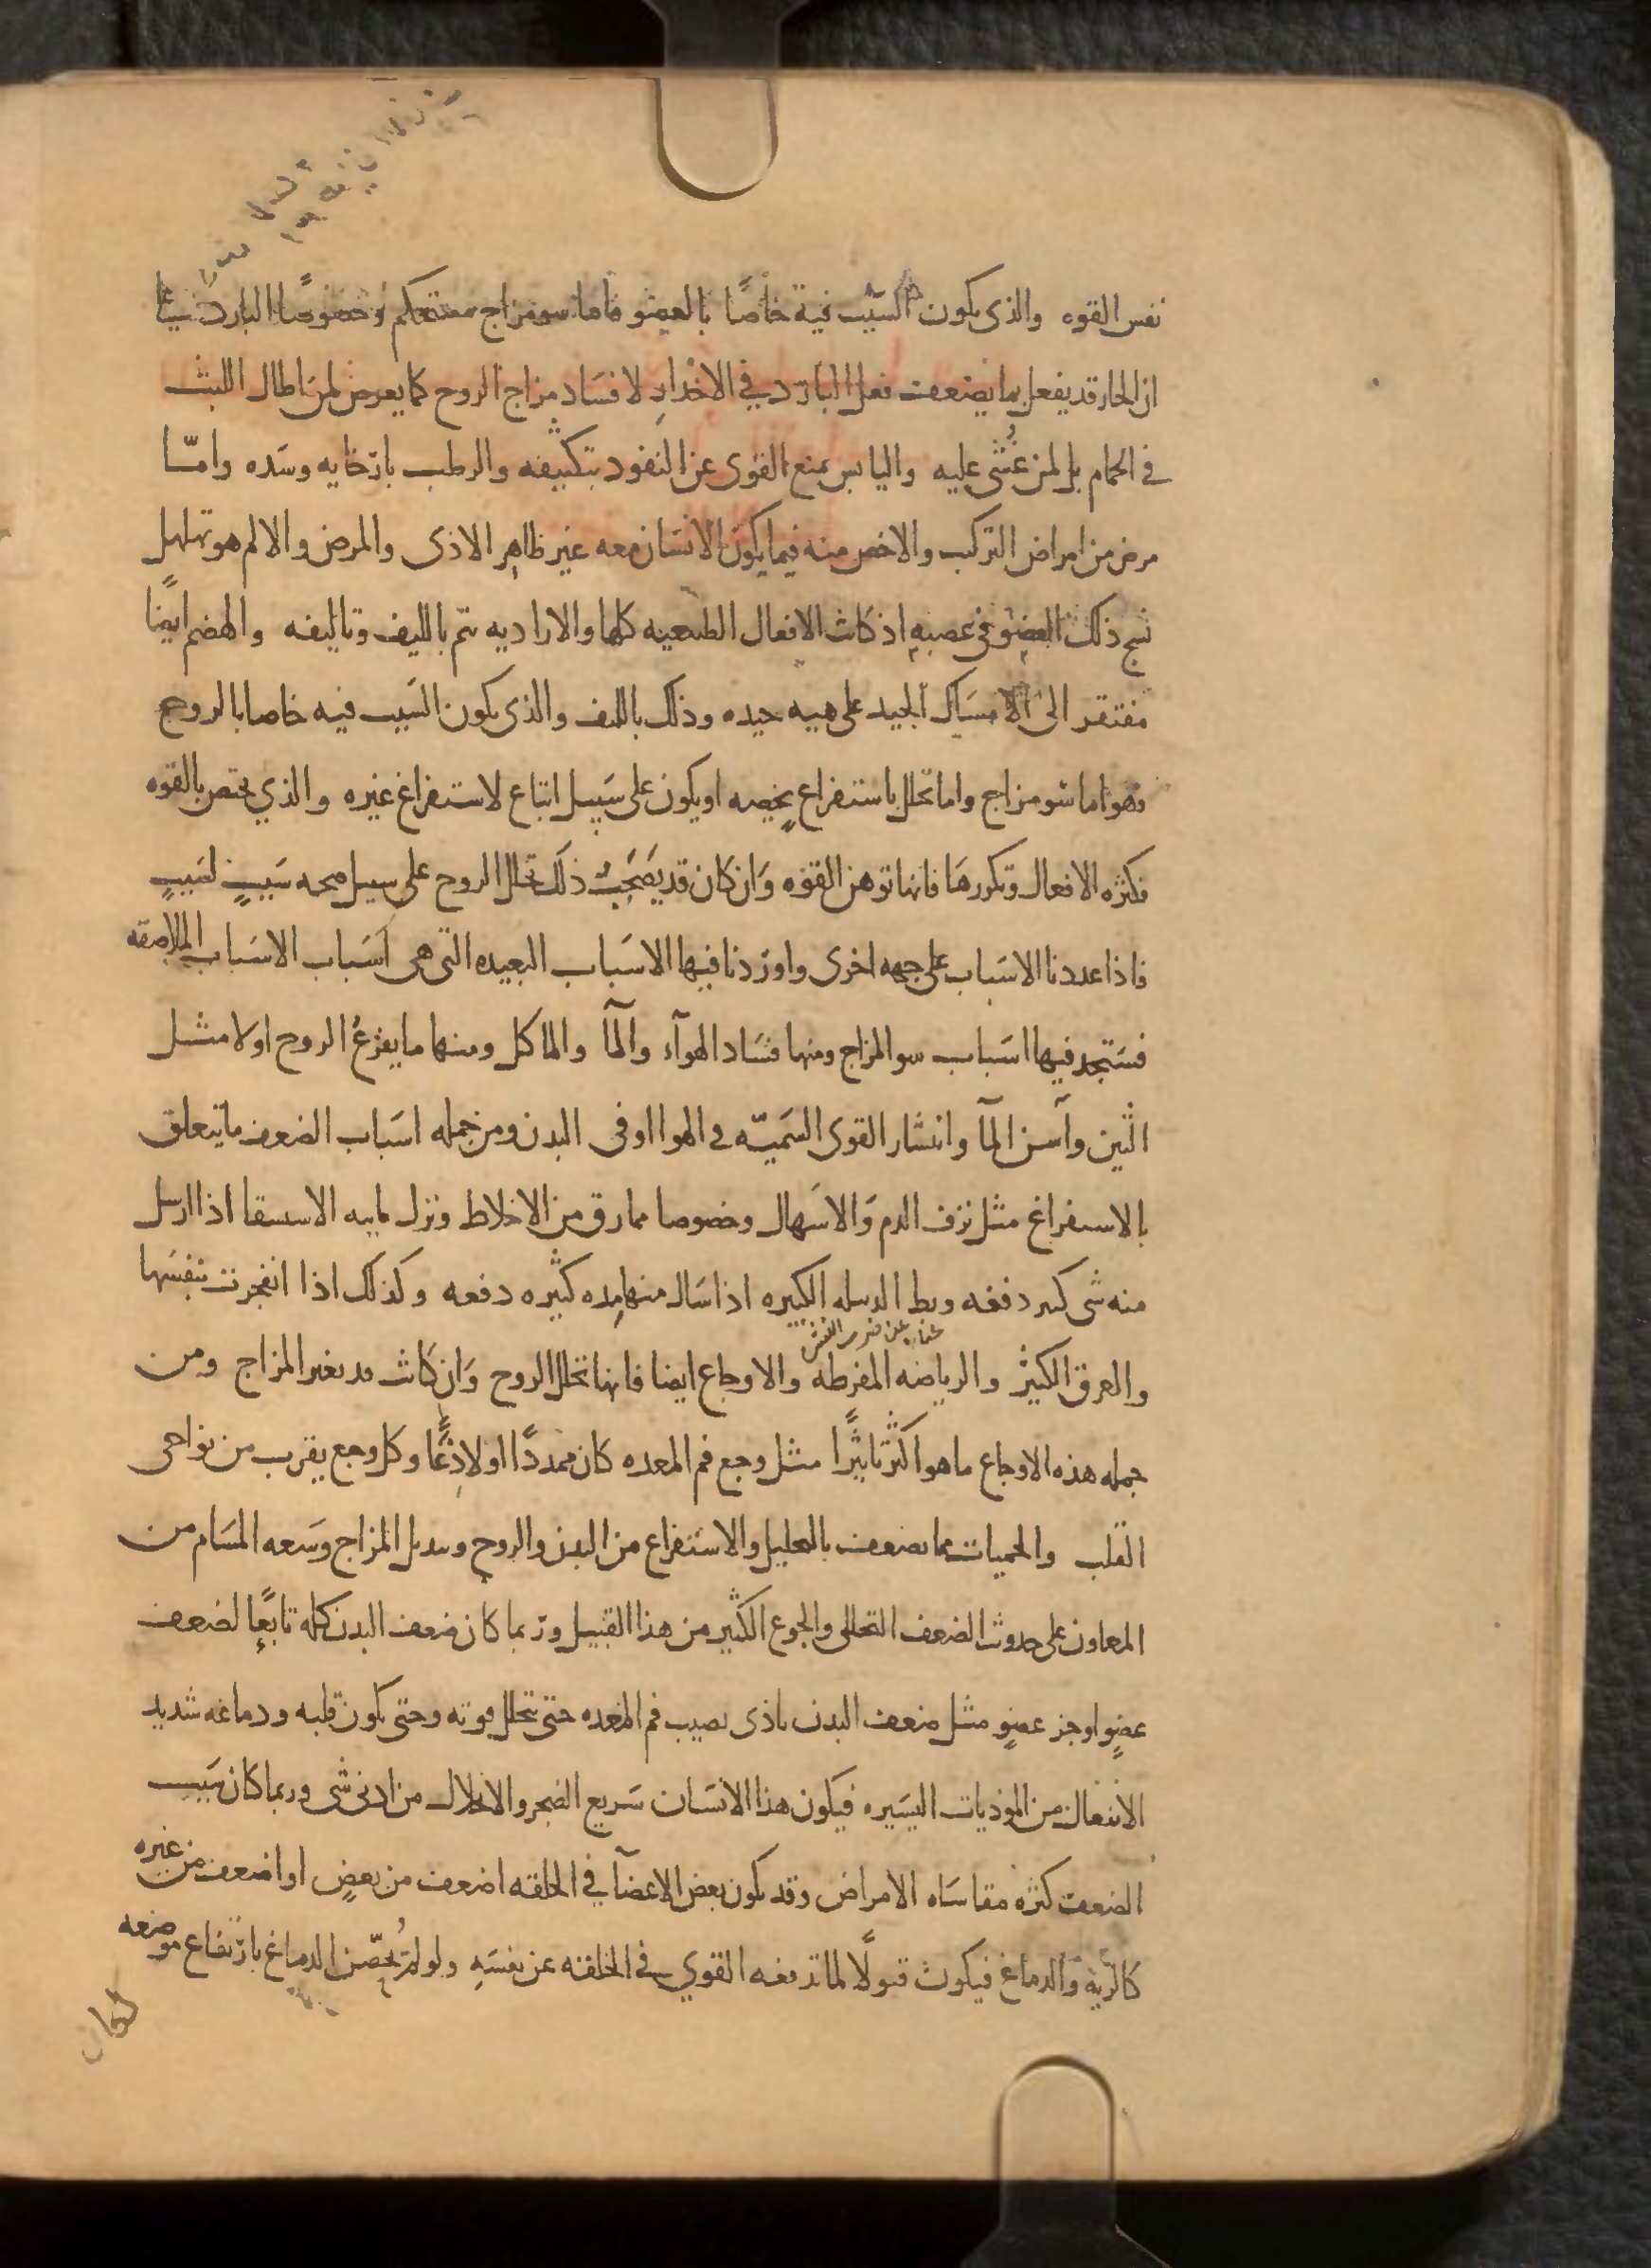 نفس القوه والذى يكون السبب فيه خاصًا بالعضو فاما سو مزاج مستحكم وخصوصًا البارد
از الحار قد يفعل بما يضعف فعل البارد في الاخدارِ لافساد مزاج الروح كما يعرض لمن اطال اللبث
في الحمام بل لمن غُشى عليه واليابس يمنع القوى عن النفود بتكثيفه والرطب بارخايه وسده وامّا
مرض من امراض التركب والاخص منه فيما يكون الانسان معه غير ظاهر الاذى والمرض والالم هو تهلهل
نسج ذلك العضو في عصبهِ اذ كانت الافعال الطبيعيه كلها والاراديه تتم بالليف وتاليفه والهضم ايضًا
مفتقر الى الامساك الجيد على هييه جيده وذلك بالليف والذى يكون السبب فيه خاصا بالروح
فهو اما سو مزاج واما تحلل باستفراغ يخصه او يكون على سبيل اتباع لاستفراغ غيره والذي يختص بالقوه
فكثره الافعال وتكررها فانها توهن القوه وَان كان قد يصحب ذلك تحلل الروح على سبيل صحبه سببٍ لسببٍ
فاذا عددنا الاسباب على جهه اخرى واوردنا فيها الاسباب البعيده التى هى اسباب الاسباب الملاصقه
فستجد فيها اسباب سو المزاج ومنها فساد الهوآء والمآ والماكل ومنها ما يفزعُ الروح اولا مثل
النتن وآسن المآ وانتشار القوى السَميّه فى الهوا او فى البدن ومن جمله اسباب الضعف ما يتعلق
بالاستفراغ مثل نزف الدم وَالاسهال وخصوصا مما رق من الاخلاط وبزل مايىه الاستسقا اذا ارسل
منه شى كثير دفعه وبط الدبيله الكبيره اذا سال منها مِده كثيره دفعه وكذلك اذا انفجرت بنفسها
والعرق الكثير والرياضه المفرطه والاوجاع ايضا فانها تحلل الروح وَان كانت قد تغير المزاج ومن
جمله هذه الاوجاع ما هو اكثر تاثيرًا مثل وجع فم المعده كان ممددًا او لاذعًا وكل وجع يقرب من نواحى
القلب والحميات مما يضعف بالتحليل والاستفراغ من البدن والروح وتبديل المزاج وسَعه المسَام من
المعاون على حدوث الضعف التحللى والجوع الكثير من هذا القبيل وربما كان ضعف البدن كله تابعًا لضعف
عضوٍ او جز عضوٍ مثل ضعف البدن باذى يصيب فم المعده حتى تتحلل قوته وحتى يكون قلبه ودماغه شديد
الانفعال من الموذيات اليسيره فيكون هذا الانسان سريع الضجر والانحلال من ادنى شى وربما كان سبب
الضعف كثره مقاساه الامراض وقد يكون بعض الاعضآ في الخلقه اضعف من بعضٍ او اضعف من غيره
كالرّيه وَالدماغ فيكون قبولًا لما تدفعه القوي في الخلقه عن نفسهِ ولو لم يُحصّن الدماغ بارتفاع موضعه
لكان